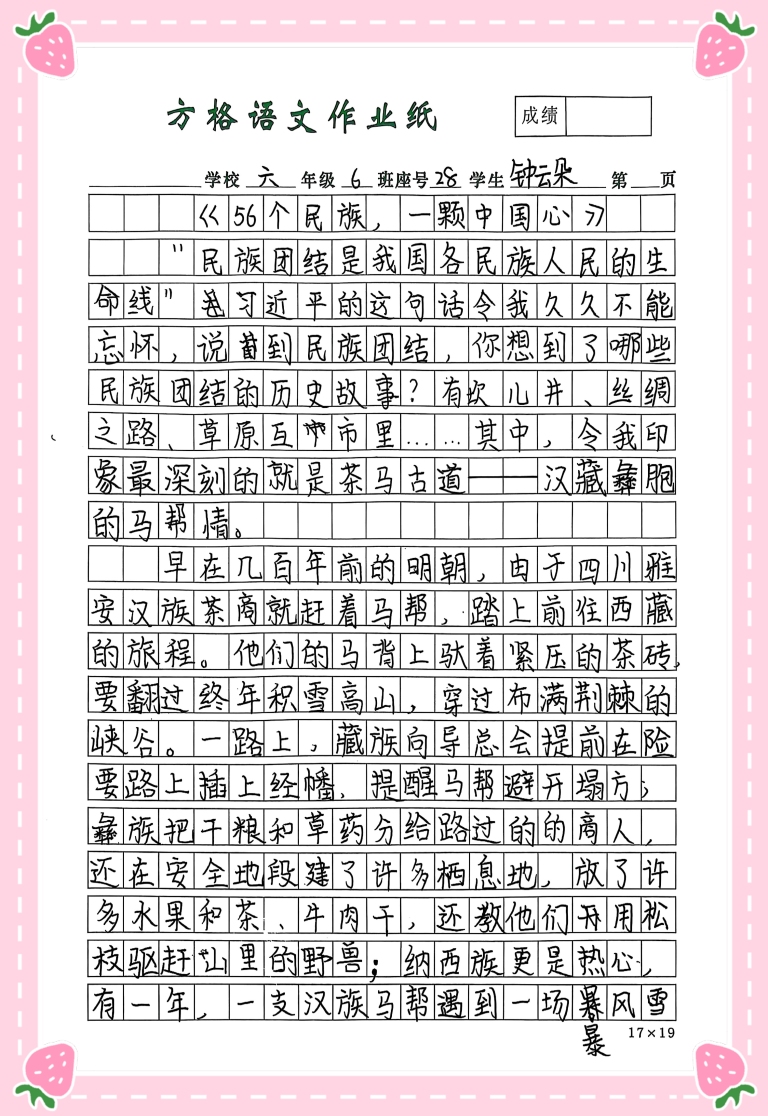 方格语文作业纸 成绩
学校 六 年级 6 班座号 28 学生 钟云朵 第 页
《56个民族，一颗中国心》
"民族团结是我国各民族人民的生
命线"习近平的这句话令我久久不能
忘怀，说到民族团结，你想到了哪些
民族团结的历史故事？有坎儿井、丝绸
之路、草原互市里……其中，令我印
象最深刻的就是茶马古道——汉藏彝胞
的马帮情。
早在几百年前的明朝，由于四川雅
安汉族茶商就赶着马帮，踏上前往西藏
的旅程。他们的马背上驮着紧压的茶砖，
要翻过终年积雪高山，穿过布满荆棘的
峡谷。一路上，藏族向导总会提前在险
要路上插上经幡，提醒马帮避开塌方；
彝族把干粮和草药分给路过的的商人，
还在安全地段建了许多栖息地，放了许
多水果和茶、牛肉干，还教他们用松
枝驱赶山里的野兽；纳西族更是热心，
有一年，一支汉族马帮遇到一场暴风雪
暴
17×19